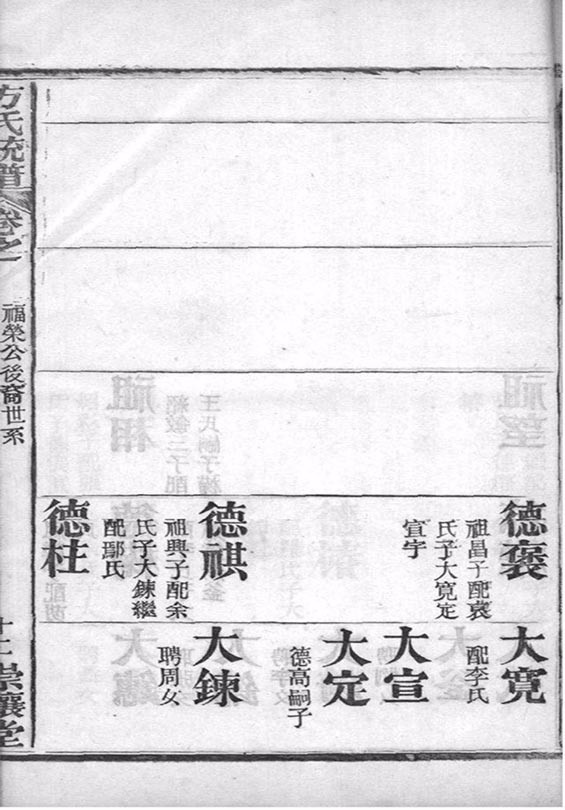 德褒
祖昌子配袁
氏子大寬定
宣宇
德祺
祖興子配余
氏子大鍊繼
配鄢氏
德柱
大寬
配李氏
大宣
大定
德高嗣子
大鍊
聘周女
方氏統譜
卷之一
福榮公後裔世系
崇讓堂